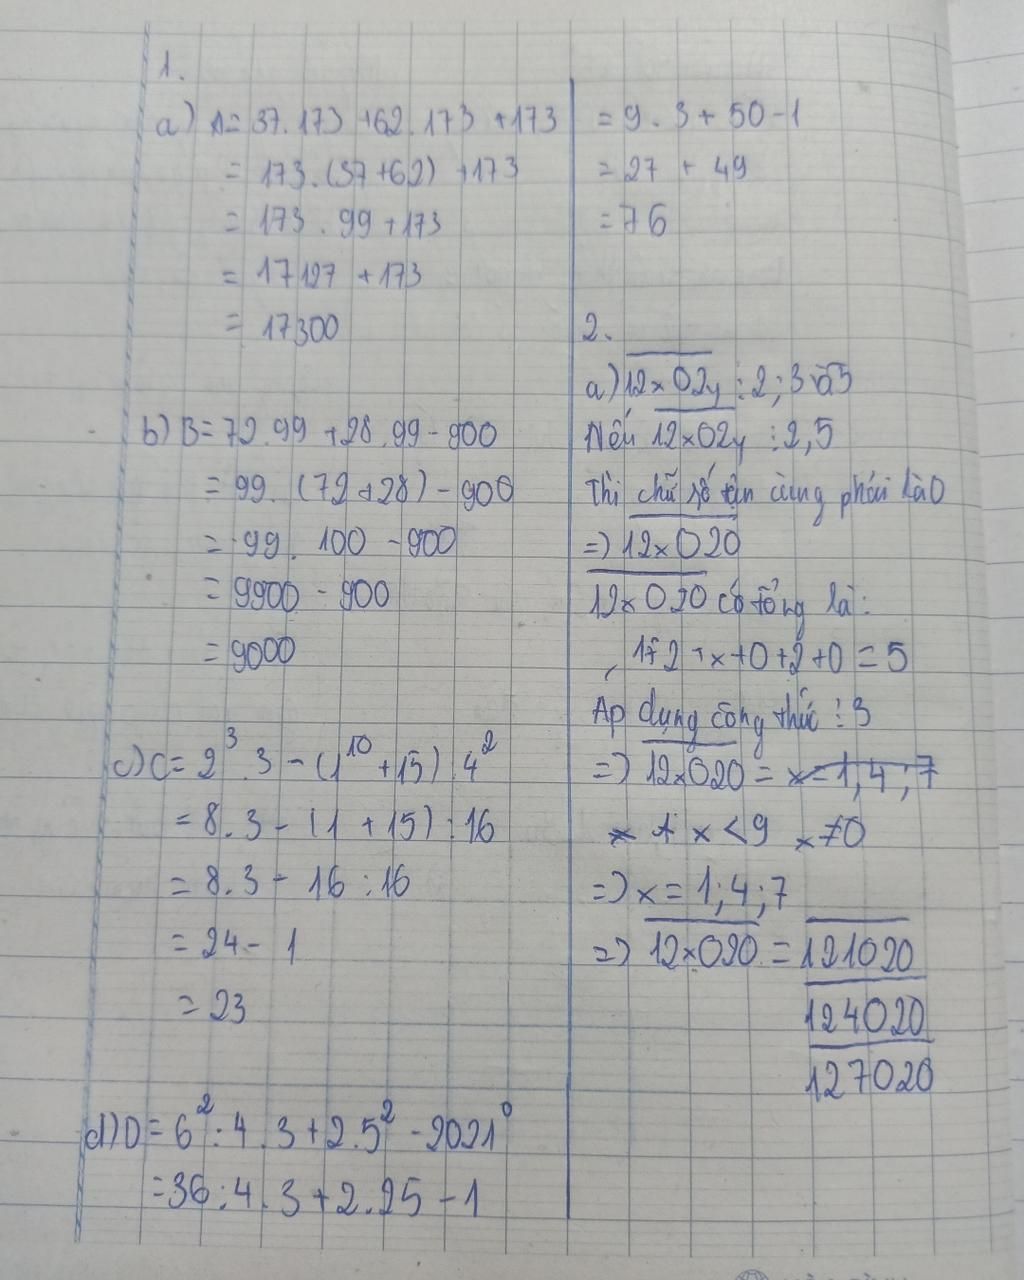 1.
a) A= 37.173 +62.173 +173
= 173.(37+62) +173
= 173 . 99 +173
= 17127 +173
= 17300
b) B= 72.99 +28.99 - 900
= 99. (72+28) - 900
= 99. 100 - 900
= 9900 - 900
= 9000
c) C= 2³.3 - (1¹⁰ +15) : 4²
= 8.3 - (1 + 15) : 16
= 8.3 - 16 : 16
= 24 - 1
= 23
d) D= 6² : 4 . 3 + 2.5² - 2021⁰
= 36 : 4 . 3 + 2.25 - 1
= 9 . 3 + 50 - 1
= 27 + 49
= 76
2.
a) 12x02y ⋮ 2 ; 3 và 5
Nếu 12x02y ⋮ 2,5
Thì chữ số tận cùng phải là 0
=> 12x020
12x020 có tổng là:
1+2+x+0+2+0 = 5
Áp dụng công thức ⋮ 3
=> 12x020 = x=1,4;7
x < 9 x≠0
=> x = 1;4;7
=> 12x020 = 121020
124020
127020